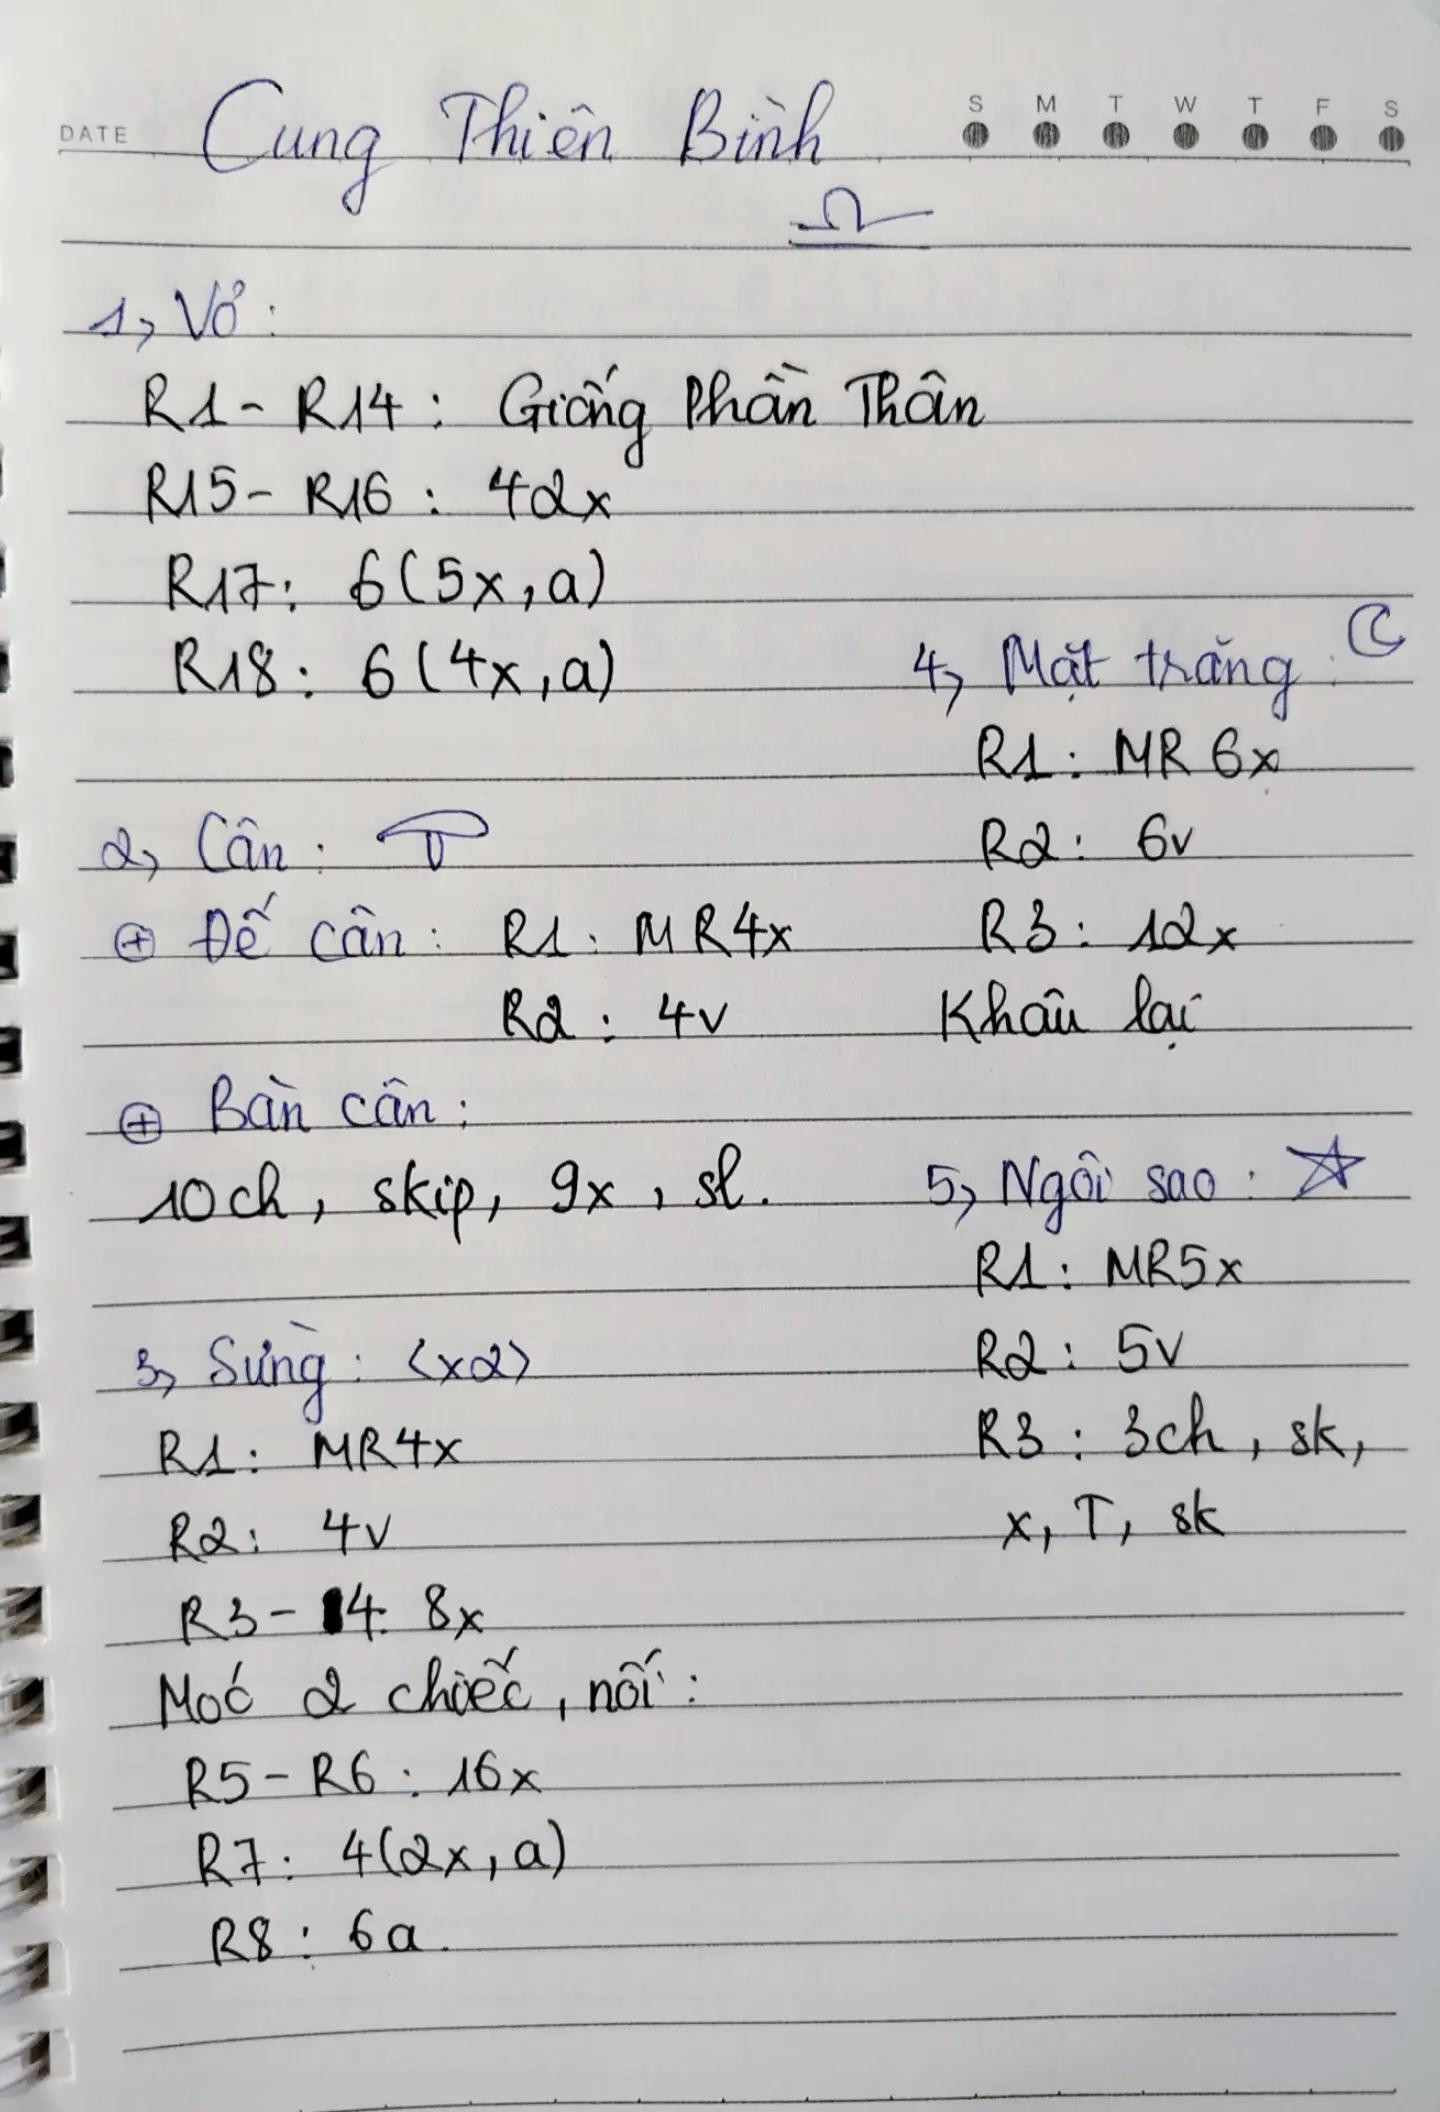 DATE Cung Thiên Bình S M T W T F S
1, Vỏ:
R1-R14: Giống Phần Thân
R15-R16: 42x
R17: 6(5x,a)
R18: 6(4x,a)
2, Cân:
⊕ Đế cân: R1: MR4x
R2: 4v
⊕ Bàn cân:
10ch, skip, 9x, sl.
3, Sừng: <x2>
R1: MR4x
R2: 4v
R3-4: 8x
Móc 2 chiếc, nối:
R5-R6: 16x
R7: 4(2x,a)
R8: 6a.
4, Mặt trăng:
R1: MR 6x
R2: 6v
R3: 12x
Khâu lại
5, Ngôi sao:
R1: MR5x
R2: 5v
R3: 3ch, sk,
x, T, sk